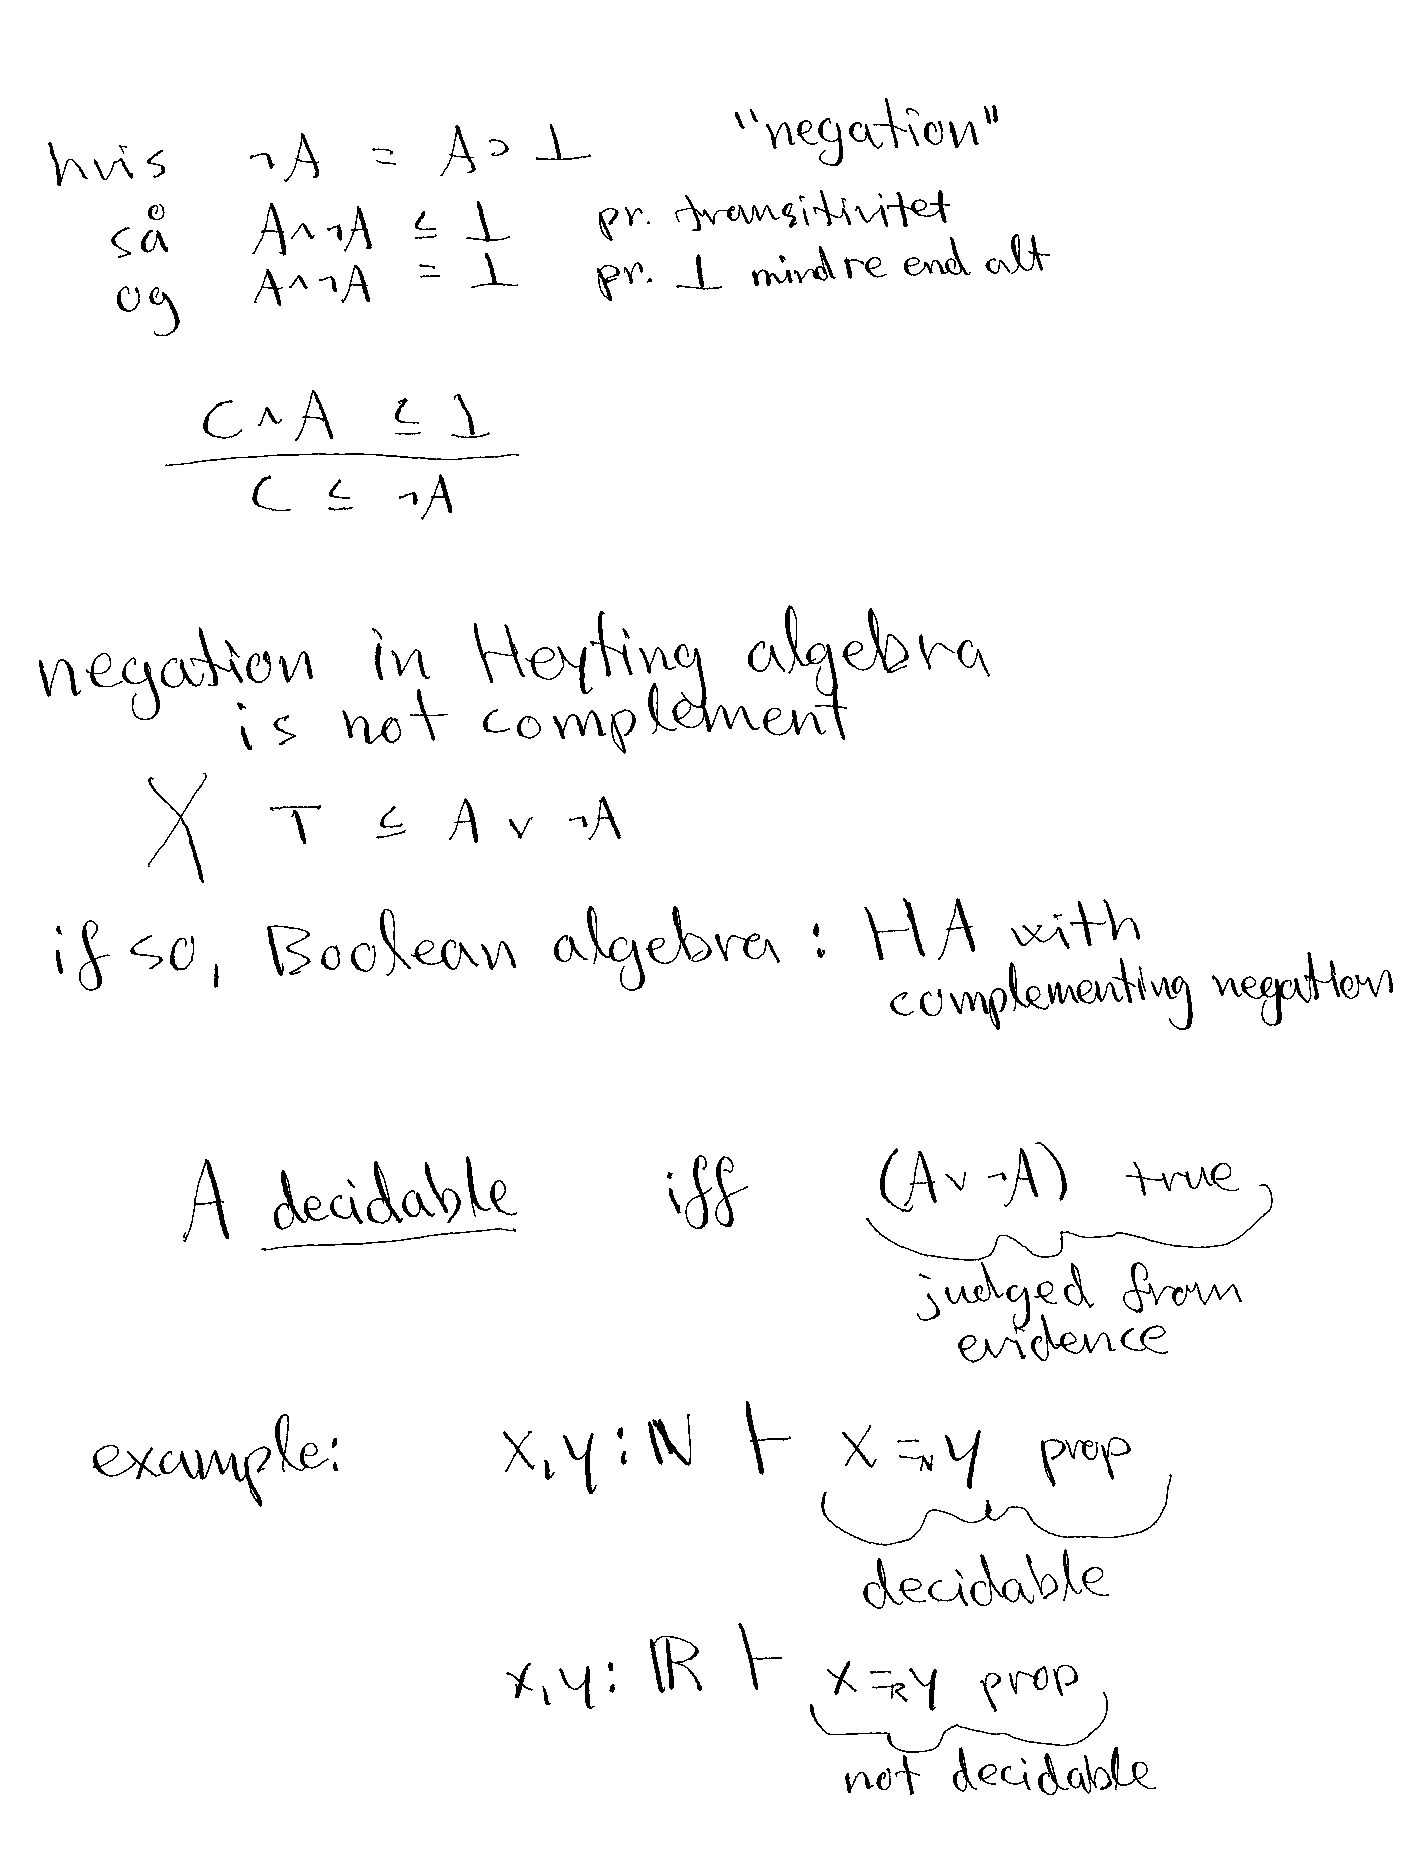 hvis ¬A = A ⊃ ⊥ "negation"
så A∧¬A ≤ ⊥ pr. transitivitet
og A∧¬A = ⊥ pr. ⊥ mindre end alt
C∧A ≤ ⊥
C ≤ ¬A
negation in Heyting algebra
is not complement
X ⊤ ≤ A ∨ ¬A
if so, Boolean algebra : HA with
complementing negation
A decidable iff (A∨¬A) true
judged from
evidence
example: x,y : ℕ ⊢ x =ℕ y prop
decidable
x,y : ℝ ⊢ x =ℝ y prop
not decidable